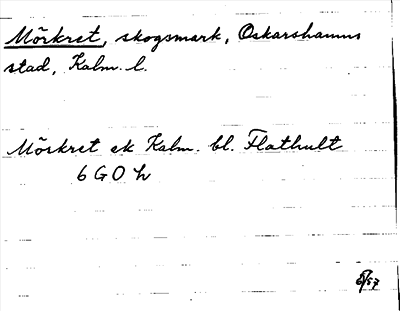 Mörkret, skogsmark, Oskarshamns
stad, Kalm. l.
Mörkret ek Kalm. bl. Flathult
6 G 0 h